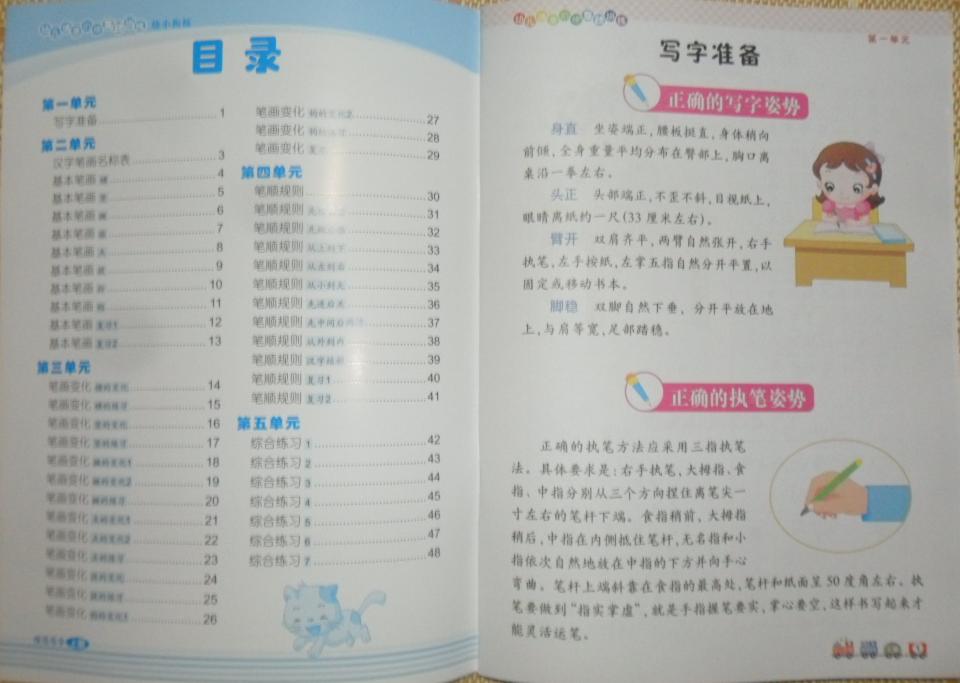 幼小衔接
目录
第一单元
写字准备 1
第二单元
汉字笔画名称表 3
基本笔画 4
基本笔画 5
基本笔画 6
基本笔画 7
基本笔画 8
基本笔画 9
基本笔画 10
基本笔画 11
基本笔画 复习1 12
基本笔画 复习2 13
第三单元
笔画变化 14
笔画变化 15
笔画变化 16
笔画变化 17
笔画变化 18
笔画变化 19
笔画变化 20
笔画变化 21
笔画变化 22
笔画变化 23
笔画变化 24
笔画变化 25
笔画变化 26
笔画变化 27
笔画变化 28
笔画变化 29
第四单元
笔顺规则 30
笔顺规则 31
笔顺规则 32
笔顺规则 从上到下 33
笔顺规则 从左到右 34
笔顺规则 从小到大 35
笔顺规则 先进后关 36
笔顺规则 37
笔顺规则 从外到内 38
笔顺规则 39
笔顺规则 复习1 40
笔顺规则 复习2 41
第五单元
综合练习 1 42
综合练习 2 43
综合练习 3 44
综合练习 4 45
综合练习 5 46
综合练习 6 47
综合练习 7 48
第一单元
写字准备
正确的写字姿势
身直 坐姿端正,腰板挺直,身体稍向
前倾,全身重量平均分布在臀部上,胸口离
桌沿一拳左右。
头正 头部端正,不歪不斜,目视纸上,
眼睛离纸约一尺(33厘米左右)。
臂开 双肩齐平,两臂自然张开,右手
执笔,左手按纸,左掌五指自然分开平置,以
固定或移动书本。
脚稳 双脚自然下垂,分开平放在地
上,与肩等宽,足部踏稳。
正确的执笔姿势
正确的执笔方法应采用三指执笔
法。具体要求是:右手执笔,大拇指、食
指、中指分别从三个方向捏住离笔尖一
寸左右的笔杆下端。食指稍前,大拇指
稍后,中指在内侧抵住笔杆,无名指和小
指依次自然地放在中指的下方并向手心
弯曲。笔杆上端斜靠在食指的最高处,笔杆和纸面呈50度角左右。执
笔要做到“指实掌虚”,就是手指握笔要实,掌心要空,这样书写起来才
能灵活运笔。